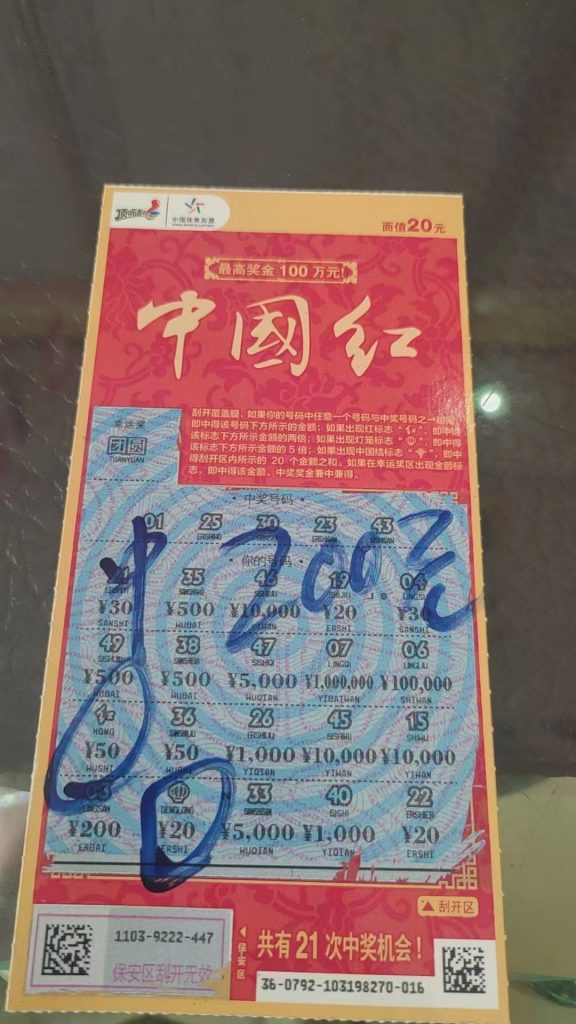 顶呱刮 中国体育彩票
CHINA SPORTS LOTTERY
面值20元
最高奖金100万元
中國红
刮开覆盖膜,如果你的号码中任意一个号码与中奖号码之一相同,
即中得该号码下方所示的金额;如果出现红标志“红”,即中得
该标志下方所示金额的两倍;如果出现灯笼标志“”,即中得
该标志下方所示金额的5倍;如果出现中国结标志“”,即中
得刮开区内所示的 20 个金额之和。如果在幸运奖区出现金额标
志,即中得该金额。中奖奖金兼中兼得。
幸运奖
团圆
TUANYUAN
中奖号码
01 25 30 23 43
你的号码
中200元
35 46 19 04
¥30 ¥500 ¥10,000 ¥20 ¥30
SANSHI WUBAI YIWAN ERSHI SANSHI
49 38 47 07 06
SISHIQI LINGQI LINGLIU
¥500 ¥500 ¥5,000 ¥1,000,000 ¥100,000
WUBAI WUBAI WUQIAN YIBAIWAN SHIWAN
红 36 26 45 15
HONG SANSHILIU ERSHILIU SISHIWU SHIWU
¥50 ¥50 ¥1,000 ¥10,000 ¥10,000
WUSHI WUSHI YIQIAN YIWAN YIWAN
03 33 40 22
LINGSAN DENGLONG SANSHISAN SISHI ERSHIER
¥200 ¥20 ¥5,000 ¥1,000 ¥20
ERBAI ERSHI WUQIAN YIQIAN ERSHI
刮开区
1103-9222-447
保安区刮开无效
保安区
共有21次中奖机会!
36-0792-103198270-016